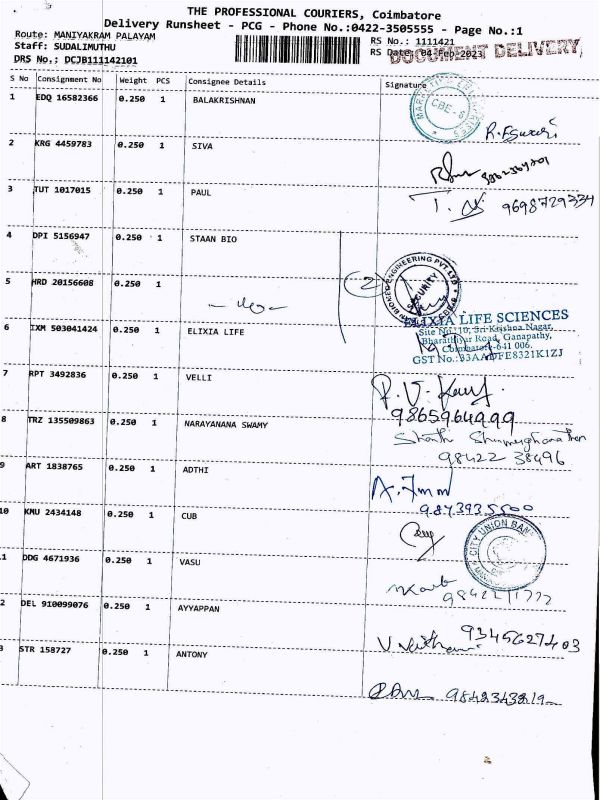 THE PROFESSIONAL COURIERS, Coimbatore
Delivery Runsheet - PCG - Phone No.:0422-3505555 - Page No.:1
Route: MANIYAKRAM PALAYAM
RS No.: 1111421
Staff: SUDALIMUTHU
RS Date: 04-Feb-2023
DOCUMENT DELIVERY
DRS No.: DCJB111142101
S No Consignment No Weight PCS Consignee Details Signature
1 EDQ 16582366 0.250 1 BALAKRISHNAN
CBE-
2 KRG 4459783 0.250 1 SIVA
3 TUT 1017015 0.250 1 PAUL
T. 9698729334
4 DPI 5156947 0.250 1 STAAN BIO
ENGINEERING PVT LTD
SECURITY
5 HRD 20156608 0.250 1
2
ELIXIA LIFE SCIENCES
6 IXM 503041424 0.250 1 ELIXIA LIFE
Site No. 10, Sri Krishna Nagar,
Bharathiyar Road, Ganapathy,
Coimbatore-641 006.
GST No.:33AADFE8321K1ZJ
7 RPT 3492836 0.250 1 VELLI
P.V.
9865964999
8 TRZ 135509863 0.250 1 NARAYANANA SWAMY
98422 38496
9 ART 1838765 0.250 1 ADTHI
10 KMU 2434148 0.250 1 CUB
CITY UNION BAN
1 DDG 4671936 0.250 1 VASU
2 DEL 910099076 0.250 1 AYYAPPAN
9345627403
3 STR 158727 0.250 1 ANTONY